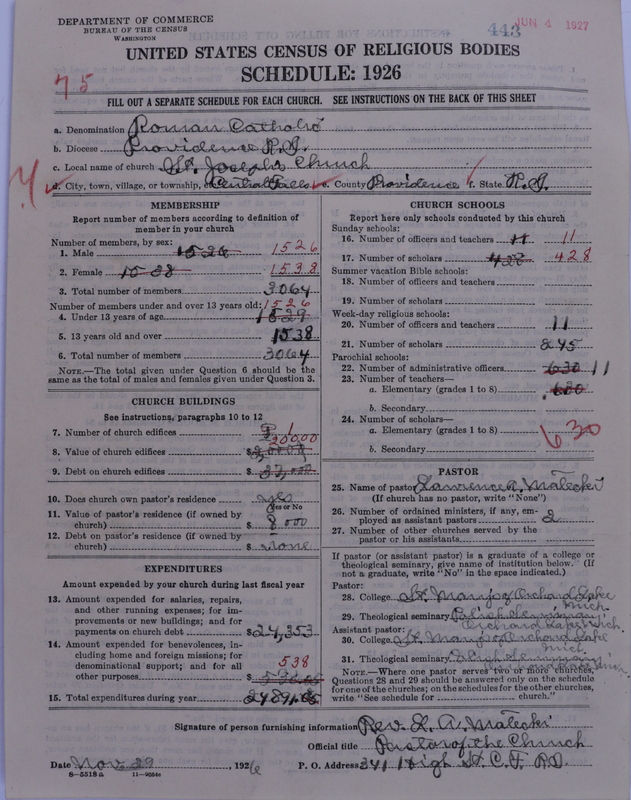 DEPARTMENT OF COMMERCE
BUREAU OF THE CENSUS
WASHINGTON
443
JUN 4 1927
UNITED STATES CENSUS OF RELIGIOUS BODIES
SCHEDULE: 1926
75
FILL OUT A SEPARATE SCHEDULE FOR EACH CHURCH. SEE INSTRUCTIONS ON THE BACK OF THIS SHEET
a. Denomination Roman Catholic
b. Diocese Providence R.I.
c. Local name of church St. Joseph's Church
d. City, town, village, or township, Central Falls e. County Providence f. State R.I.
MEMBERSHIP
Report number of members according to definition of
member in your church
Number of members, by sex:
1. Male 1526 1526
2. Female 1538 1538
3. Total number of members 3064
Number of members under and over 13 years old: 1526
4. Under 13 years of age
5. 13 years old and over 1538
6. Total number of members 3064
NOTE.—The total given under Question 6 should be
same as the total of males and females given under Question 3.
CHURCH BUILDINGS
See instructions, paragraphs 10 to 12
7. Number of church edifices 1
8. Value of church edifices $ 20000
9. Debt on church edifices $
10. Does church own pastor's residence yes
Yes or No
11. Value of pastor's residence (if owned by
church) $ 8000
12. Debt on pastor's residence (if owned by
church) $ None
EXPENDITURES
Amount expended by your church during last fiscal year
13. Amount expended for salaries, repairs,
and other running expenses; for im-
provements or new buildings; and for
payments on church debt $24,353
14. Amount expended for benevolences, in-
cluding home and foreign missions; for
denominational support; and for all
other purposes 538
15. Total expenditures during year
CHURCH SCHOOLS
Report here only schools conducted by this church
Sunday schools:
16. Number of officers and teachers 11 11
17. Number of scholars 428 428
Summer vacation Bible schools:
18. Number of officers and teachers
19. Number of scholars
Week-day religious schools:
20. Number of officers and teachers 11
21. Number of scholars 245
Parochial schools:
22. Number of administrative officers 630 11
23. Number of teachers—
a. Elementary (grades 1 to 8)
b. Secondary
24. Number of scholars—
a. Elementary (grades 1 to 8) 630
b. Secondary
PASTOR
25. Name of pastor Lawrence A. Malecki
(If church has no pastor, write "None")
26. Number of ordained ministers, if any, em-
ployed as assistant pastors 2
27. Number of other churches served by the
pastor or his assistants
If pastor (or assistant pastor) is a graduate of a college or
theological seminary, give name of institution below. (If
not a graduate, write "No" in the space indicated.)
Pastor:
28. College St. Mary's Orchard Lake
Mich.
29. Theological seminary Polish Seminary
Orchard Lake Mich.
Assistant pastor:
30. College St. Mary's Orchard Lake
Mich.
31. Theological seminary Polish Seminary Mich.
NOTE.—Where one pastor serves two or more churches,
Questions 28 and 29 should be answered only on the schedule
for one of the churches; on the schedules for the other churches,
write "See schedule for church."
Signature of person furnishing information Rev. L. A. Malecki
Official title Pastor of the Church
Date Nov. 29, 1926 P. O. Address 341 High St. C. F. R.I.
8—5518 a 11—9064